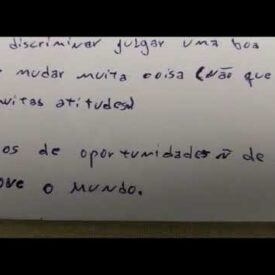 discriminar julgar uma boa
mudar muita coisa (Não que
muitas atitudes)
os de oportunidades ñ de
ove o mundo.